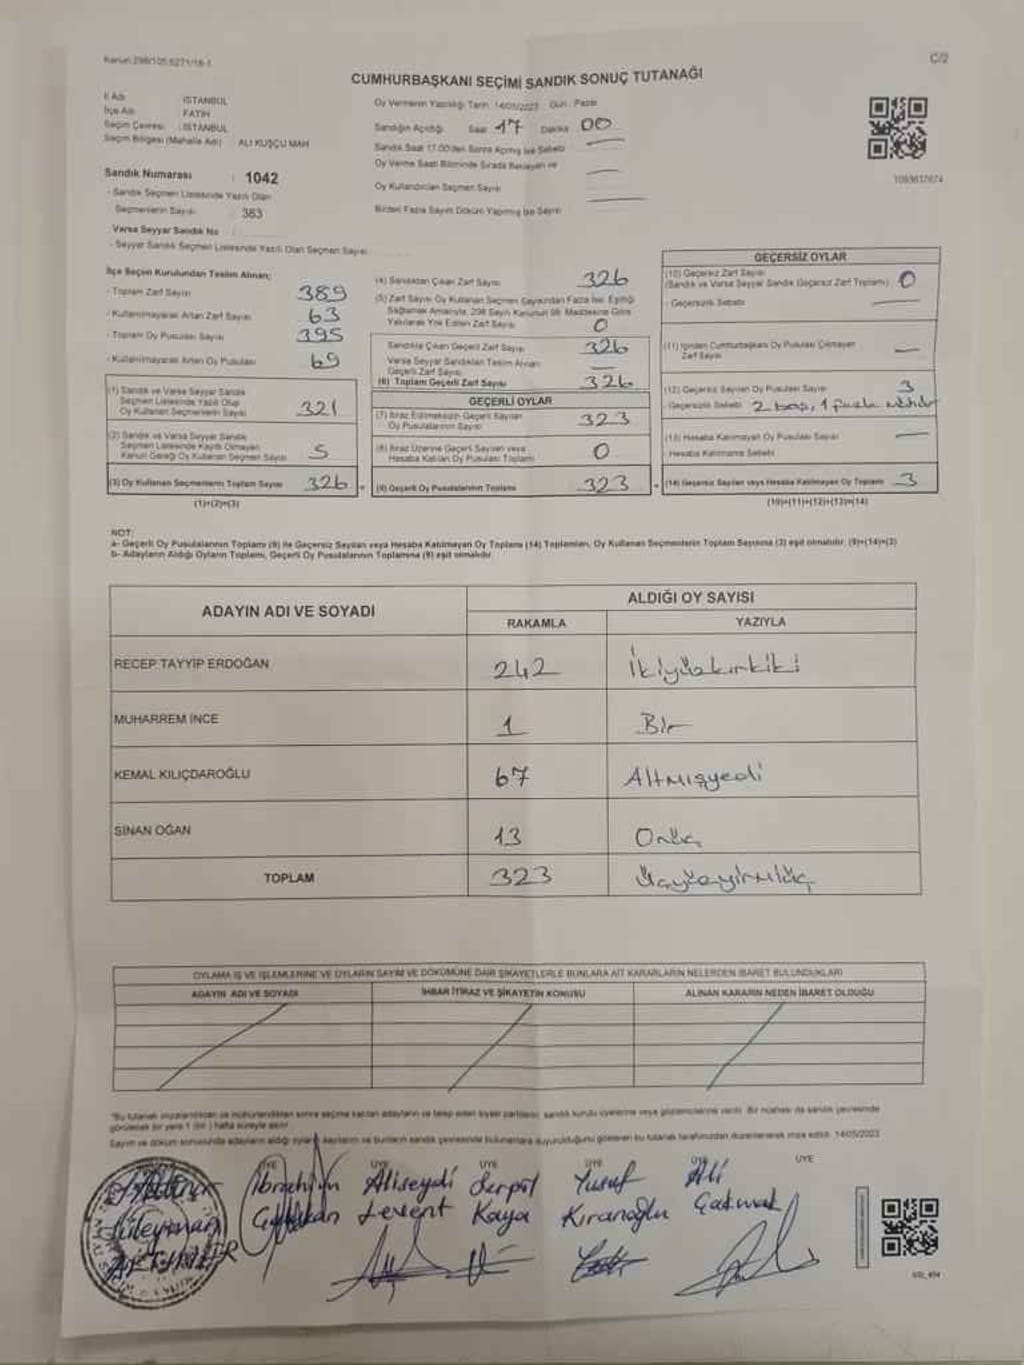 Kanun:298/105,6271/18-1
C/2
CUMHURBAŞKANI SEÇİMİ SANDIK SONUÇ TUTANAĞI
İl Adı : İSTANBUL
İlçe Adı : FATİH
Seçim Çevresi : İSTANBUL
Seçim Bölgesi (Mahalle Adı) ALİ KUŞÇU MAH
Sandık Numarası : 1042
- Sandık Seçmen Listesinde Yazılı Olan
Seçmenlerin Sayısı : 383
Varsa Seyyar Sandık No :
- Seyyar Sandık Seçmen Listesinde Yazılı Olan Seçmen Sayısı:
Oy Vermenin Yapıldığı Tarih: 14/05/2023 Gün : Pazar
Sandığın Açıldığı Saat 17 Dakika 00
Sandık Saat 17.00'den Sonra Açılmış İse Sebebi
Oy Verme Saati Bitiminde Sırada Bekleyen ve
Oy Kullandırılan Seçmen Sayısı
Birden Fazla Sayım Döküm Yapılmış İse Sayısı
İlçe Seçim Kurulundan Teslim Alınan;
- Toplam Zarf Sayısı 389
- Kullanılmayarak Artan Zarf Sayısı 63
- Toplam Oy Pusulası Sayısı 395
- Kullanılmayarak Artan Oy Pusulası 69
(1) Sandık ve Varsa Seyyar Sandık
Seçmen Listesinde Yazılı Olup
Oy Kullanan Seçmenlerin Sayısı 321
(2) Sandık ve Varsa Seyyar Sandık
Seçmen Listesinde Kayıtlı Olmayan
Kanun Gereği Oy Kullanan Seçmen Sayısı 5
(3) Oy Kullanan Seçmenlerin Toplam Sayısı 326
(1)+(2)=(3)
(4) Sandıktan Çıkan Zarf Sayısı 326
(5) Zarf Sayısı Oy Kullanan Seçmen Sayısından Fazla İse, Eşitliği
Sağlamak Amacıyla, 298 Sayılı Kanunun 98. Maddesine Göre
Yakılarak Yok Edilen Zarf Sayısı 0
Sandıkta Çıkan Geçerli Zarf Sayısı 326
Varsa Seyyar Sandıktan Teslim Alınan
Geçerli Zarf Sayısı
(6) Toplam Geçerli Zarf Sayısı 326
GEÇERLİ OYLAR
(7) İtiraz Edilmeksizin Geçerli Sayılan
Oy Pusulalarının Sayısı 323
(8) İtiraz Üzerine Geçerli Sayılan veya
Hesaba Katılan Oy Pusulası Toplamı 0
(9) Geçerli Oy Pusulalarının Toplamı 323
GEÇERSİZ OYLAR
(10) Geçersiz Zarf Sayısı
(Sandık ve Varsa Seyyar Sandık Geçersiz Zarf Toplamı) 0
- Geçersizlik Sebebi
(11) İçinden Cumhurbaşkanı Oy Pusulası Çıkmayan
Zarf Sayısı
(12) Geçersiz Sayılan Oy Pusulası Sayısı 3
- Geçersizlik Sebebi 2 boş, 1 fazla mühür
(13) Hesaba Katılmayan Oy Pusulası Sayısı
- Hesaba Katılmama Sebebi
(14) Geçersiz Sayılan veya Hesaba Katılmayan Oy Toplamı 3
(10)+(11)+(12)+(13)=(14)
NOT:
a- Geçerli Oy Pusulalarının Toplamı (9) ile Geçersiz Sayılan veya Hesaba Katılmayan Oy Toplamı (14) Toplamları, Oy Kullanan Seçmenlerin Toplam Sayısına (3) eşit olmalıdır. (9)+(14)=(3)
b- Adayların Aldığı Oyların Toplamı, Geçerli Oy Pusulalarının Toplamına (9) eşit olmalıdır.
ADAYIN ADI VE SOYADI
ALDIĞI OY SAYISI
RAKAMLA YAZIYLA
RECEP TAYYİP ERDOĞAN 242 İkiyüzkırkiki
MUHARREM İNCE 1 Bir
KEMAL KILIÇDAROĞLU 67 Altmışyedi
SİNAN OĞAN 13 Onüç
TOPLAM 323 Üçyüzyirmiüç
OYLAMA İŞ VE İŞLEMLERİNE VE OYLARIN SAYIM VE DÖKÜMÜNE DAİR ŞİKAYETLERLE BUNLARA AİT KARARLARIN NELERDEN İBARET BULUNDUKLARI
ADAYIN ADI VE SOYADI İHBAR İTİRAZ VE ŞİKAYETİN KONUSU ALINAN KARARIN NEDEN İBARET OLDUĞU
*Bu tutanak imzalandıktan ve mühürlendikten sonra seçime katılan adayların ve talep eden siyasi partilerin, sandık kurulu üyelerine veya gözlemcilerine verilir. Bir nüshası da sandık çevresinde
görülecek bir yere 1 (bir) hafta süreyle asılır.
Sayım ve döküm sonucunda adayların aldığı oyların sayılarını ve bunların sandık çevresinde bulunanlara duyurulduğunu gösteren bu tutanak tarafımızdan düzenlenerek imza edildi. 14/05/2023
ÜYE ÜYE ÜYE ÜYE ÜYE ÜYE
İbrahim Aliseydi Serpil Yusuf Ali
Süleyman Levent Kaya Kıranoğlu Çakmak